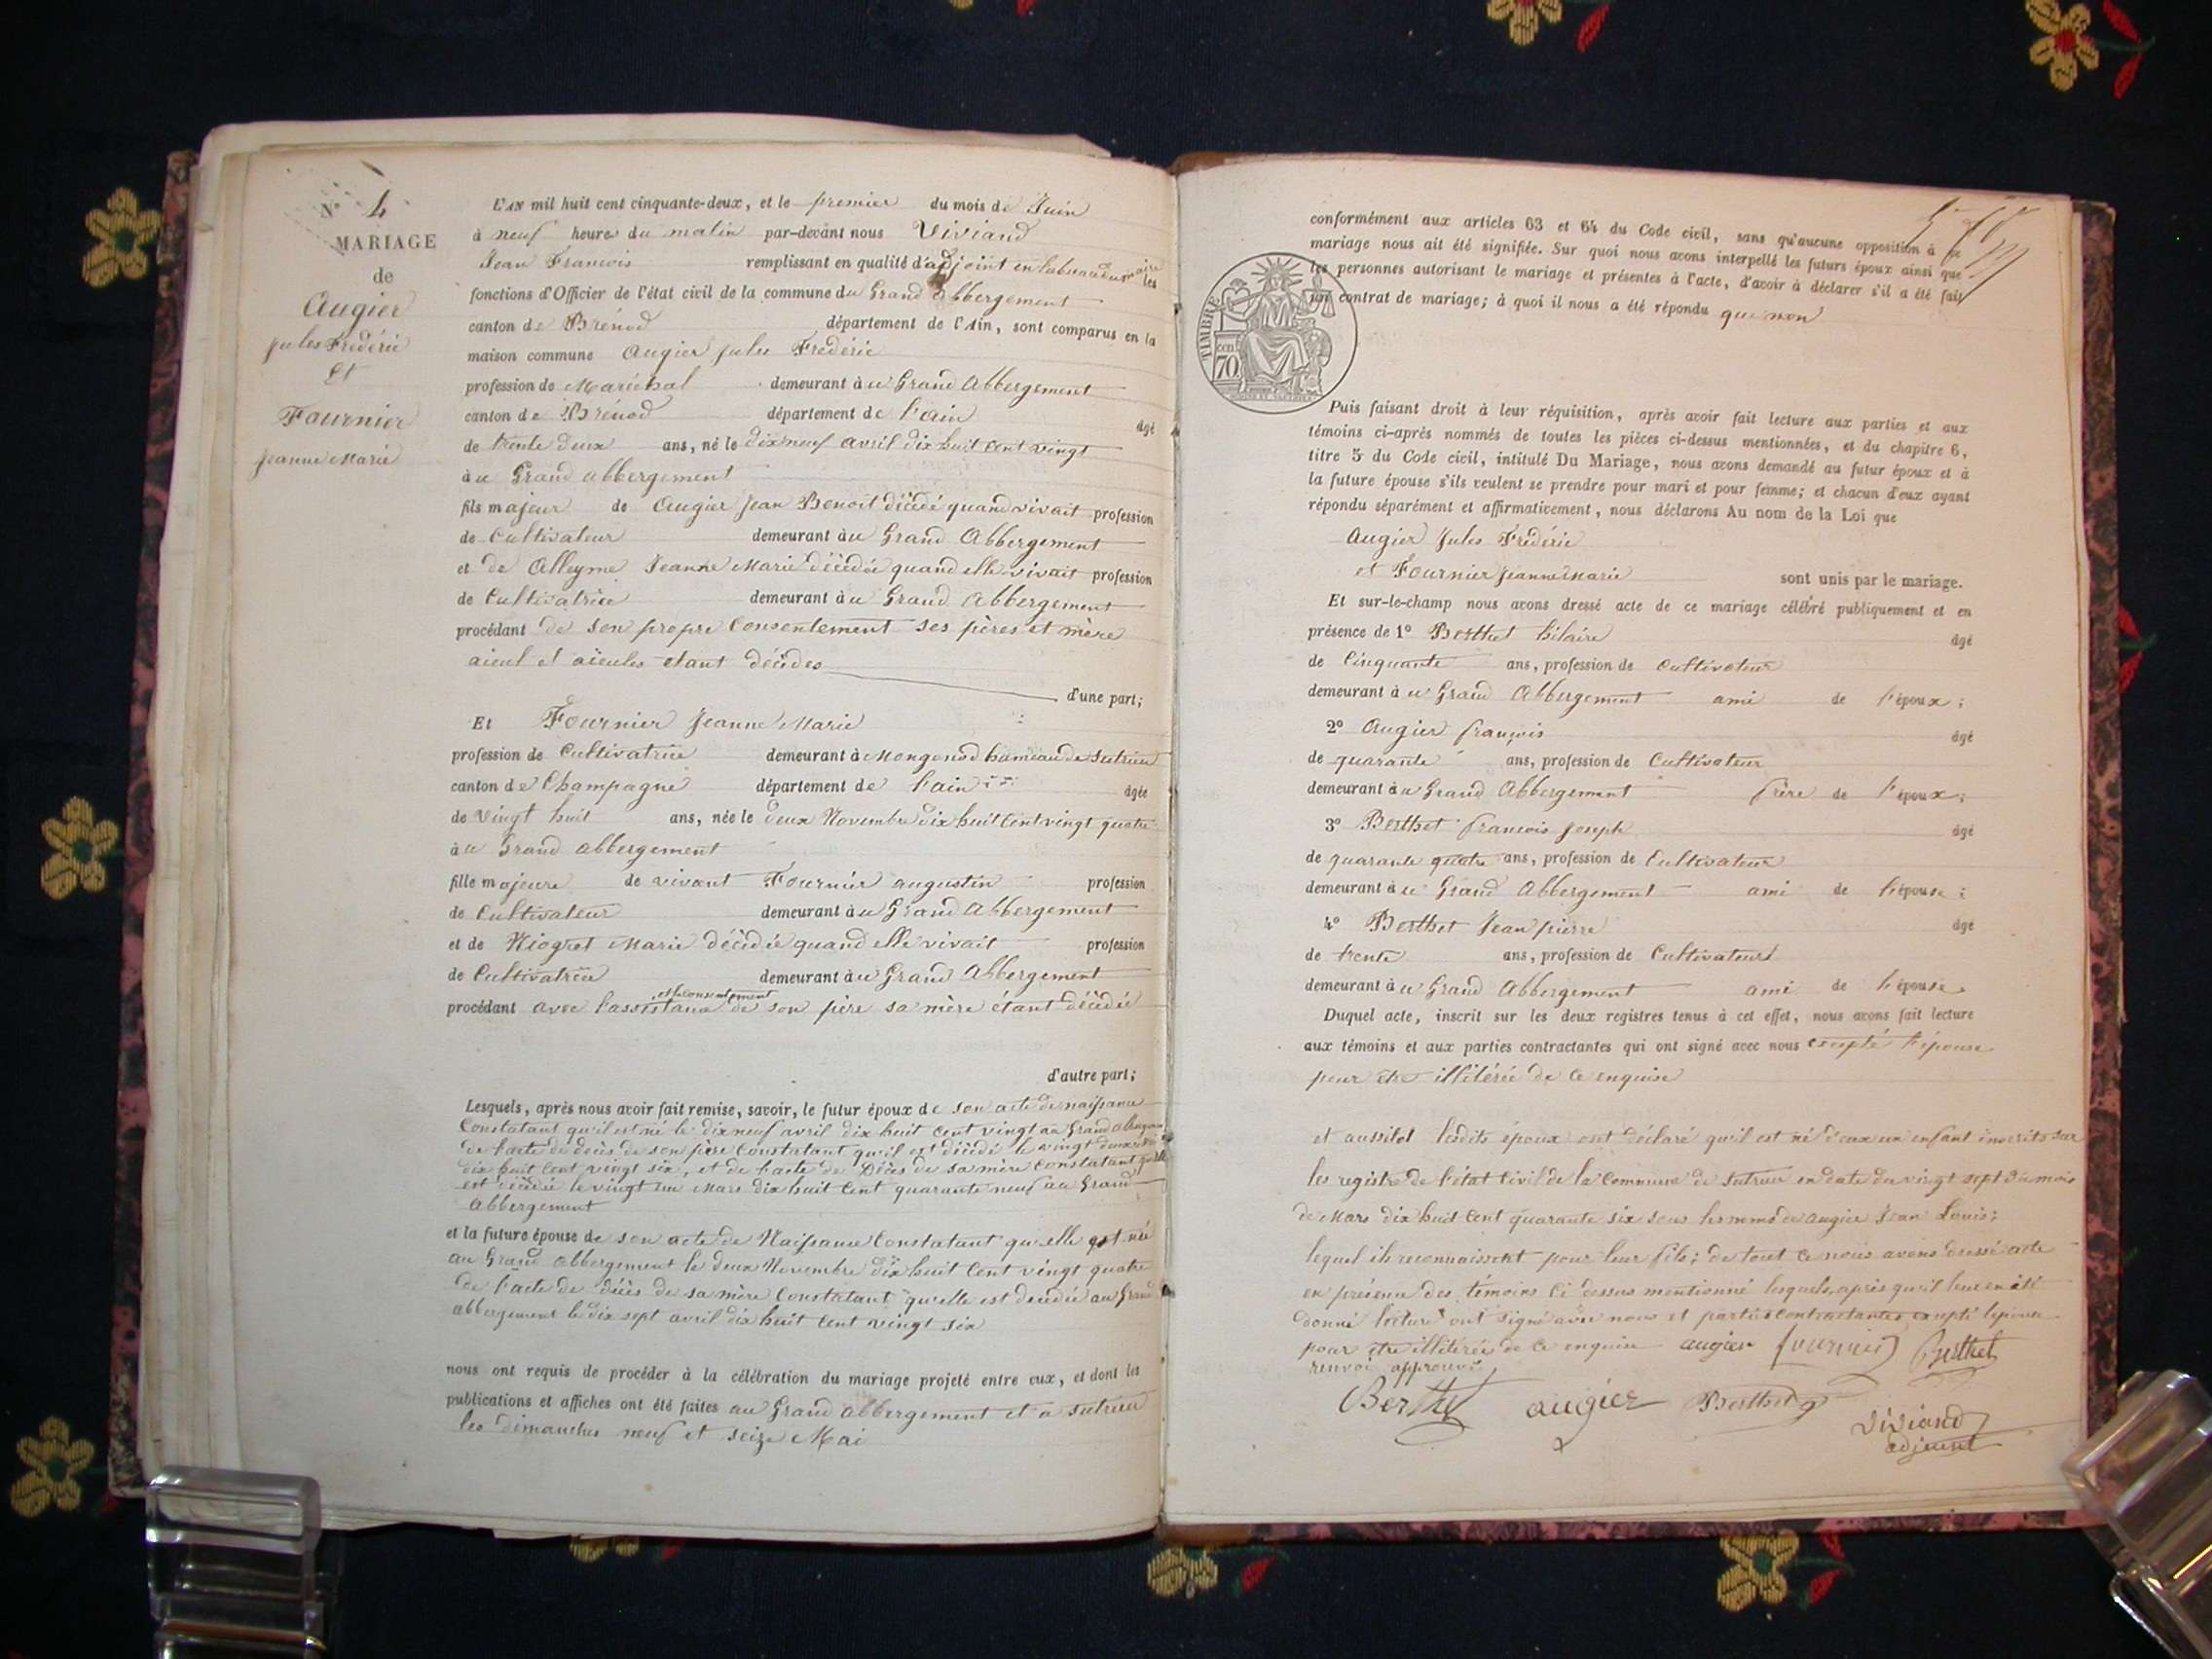 N° 4
MARIAGE
de
Augier
Jules Frédéric
Et
Fournier
Jeanne Marie
L'AN mil huit cent cinquante-deux, et le premier du mois de Juin
à neuf heures du matin par-devant nous Viviand
Jean François remplissant en qualité d'adjoint en les
fonctions d'Officier de l'état civil de la commune du Grand Abbergement
canton de Brénod département de l'Ain, sont comparus en la
maison commune Augier Jules Frédéric
profession de Maréchal demeurant à u Grand Abbergement
canton de Brénod département de l'ain âgé
de trente deux ans, né le dix neuf avril dix huit cent vingt
à u Grand abbergement
fils majeur de Augier Jean Benoit décédé quand vivait profession
de Cultivateur demeurant à u Grand Abbergement
et de Alleyme Jeanne Marie décédée quand elle vivait profession
de Cultivatrice demeurant à u Grand Abbergement
procédant de son propre Consentement ses pères et mère
aieul et aieules etant décédes
d'une part;
Et Fournier Jeanne Marie
profession de Cultivatrice demeurant à Mongonod hameau de Sutrieu
canton de Champagne département de l'ain âgée
de vingt huit ans, née le deux Novembre dix huit Cent vingt quatre
à u Grand abbergement
fille majeure de vivant Fournier augustin profession
de Cultivateur demeurant à u Grand Abbergement
et de Niogret Marie décédée quand elle vivait profession
de Cultivatrice demeurant à u Grand Abbergement
et le consentement
procédant avec l'assistance de son père sa mère étant décédée
d'autre part;
Lesquels, après nous avoir fait remise, savoir, le futur époux de son acte de naissance
Constatant qu'il est né le dix neuf avril dix huit Cent vingt au Grand
de l'acte de décès de son père Constatant qu'il est décédé le vingt
dix huit Cent vingt six, et de l'acte de Décès de sa mère Constatant
est décédée le vingt un Mars dix huit Cent quarante neuf au Grand
Abbergement
et la future épouse de son acte de Naissance Constatant qu'elle est née
au Grand Abbergement le deux Novembre dix huit Cent vingt quatre
de l'acte de décès de sa mère Constatant qu'elle est décédée au Grand
abbergement le dix sept avril dix huit Cent vingt six
nous ont requis de procéder à la célébration du mariage projeté entre eux, et dont les
publications et affiches ont été faites au Grand abbergement et a Sutrieu
les dimanches neuf et seize Mai
conformément aux articles 63 et 64 du Code civil, sans qu'aucune opposition à ce
mariage nous ait été signifiée. Sur quoi nous avons interpellé les futurs époux ainsi que
les personnes autorisant le mariage et présentes à l'acte, d'avoir à déclarer s'il a été fait
un contrat de mariage; à quoi il nous a été répondu que non
TIMBRE
cen
70
Puis faisant droit à leur réquisition, après avoir fait lecture aux parties et aux
témoins ci-après nommés de toutes les pièces ci-dessus mentionnées, et du chapitre 6,
titre 5 du Code civil, intitulé Du Mariage, nous avons demandé au futur époux et à
la future épouse s'ils veulent se prendre pour mari et pour femme; et chacun d'eux ayant
répondu séparément et affirmativement, nous déclarons Au nom de la Loi que
Augier Jules Frédéric
et Fournier Jeanne Marie sont unis par le mariage.
Et sur-le-champ nous avons dressé acte de ce mariage célébré publiquement et en
présence de 1° Berthet hilaire âgé
de Cinquante ans, profession de Cultivateur
demeurant à u Grand Abbergement ami de l'époux;
2° Augier françois âgé
de quarante ans, profession de Cultivateur
demeurant à u Grand Abbergement frère de l'époux;
3° Berthet francois joseph âgé
de quarante quatre ans, profession de Cultivateur
demeurant à u Grand Abbergement ami de l'épouse;
4° Berthet Jean pierre âgé
de trente ans, profession de Cultivateur
demeurant à u Grand Abbergement ami de l'épouse
Duquel acte, inscrit sur les deux registres tenus à cet effet, nous avons fait lecture
aux témoins et aux parties contractantes qui ont signé avec nous excepté l'épouse
pour être illitérée de ce enquise
et aussitot lesdits époux ont déclaré qu'il est né d'eux un enfant inscrit sur
les registre de l'état Civil de la Commune de Sutrieu en date du vingt sept du mois
de Mars dix huit Cent quarante six sous les noms de augier Jean Louis;
lequel ils reconnaissent pour leur fils; de tout ce nous avons dressé acte
en présence des témoins Ci dessus mentionné lesquels après qu'il leur en été
donné lecture ont signé avec nous et parties Contractantes excepté l'épouse
pour être illitérée de ce enquise augier fournier Berthet
renvoi approuvé
Berthet augier Berthet Viviand
adjoint